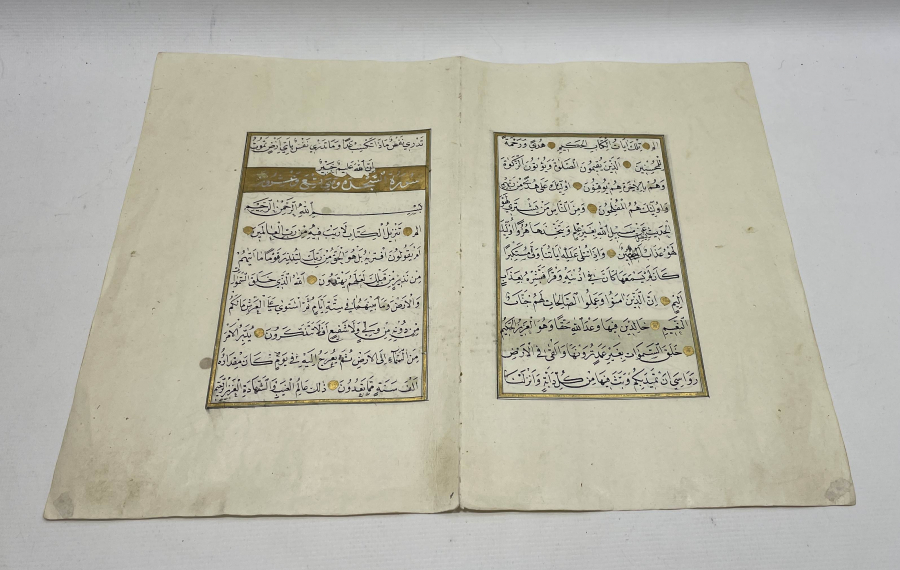 الم تلك ايات الكتاب الحكيم هدى ورحمة
للمحسنين الذين يقيمون الصلوة ويؤتون الزكوة
وهم بالاخرة هم يوقنون اولئك على هدى من ربهم
واولئك هم المفلحون ومن الناس من يشتري لهو
الحديث ليضل عن سبيل الله بغير علم ويتخذها هزوا اولئك
لهم عذاب مهين واذا تتلى عليه اياتنا ولى مستكبرا
كان لم يسمعها كان في اذنيه وقرا فبشره بعذاب
اليم ان الذين امنوا وعملوا الصالحات لهم جنات
النعيم خالدين فيها وعد الله حقا وهو العزيز الحكيم
خلق السموات بغير عمد ترونها والقى في الارض
رواسي ان تميد بكم وبث فيها من كل دابة وانزلنا
تدري نفس ماذا تكسب غدا وما تدري نفس باي ارض تموت
ان الله عليم خبير
سورة
بسم الله الرحمن الرحيم
الم تنزيل الكتاب لا ريب فيه من رب العالمين
ام يقولون افتريه بل هو الحق من ربك لتنذر قوما ما اتيهم
من نذير من قبلك لعلهم يهتدون الله الذي خلق السموات
والارض وما بينهما في ستة ايام ثم استوى على العرش ما لكم
من دونه من ولي ولا شفيع افلا تتذكرون يدبر الامر
من السماء الى الارض ثم يعرج اليه في يوم كان مقداره
الف سنة مما تعدون ذلك عالم الغيب والشهادة العزيز الرحيم